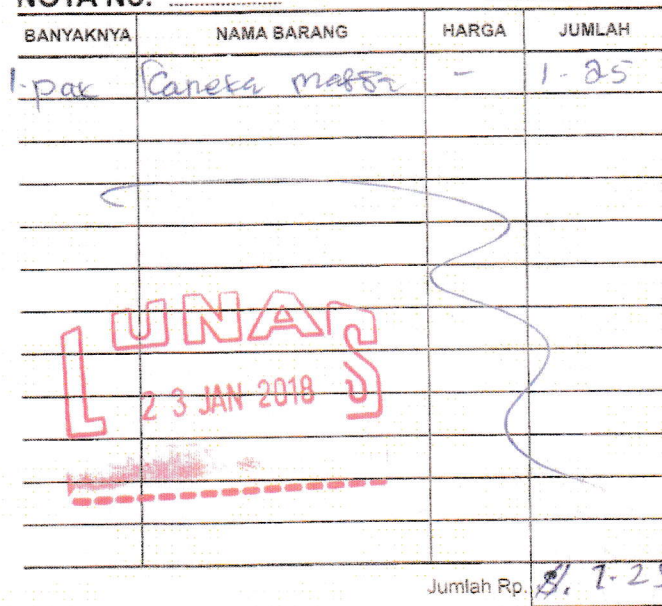 NOTA No. ..............
BANYAKNYA NAMA BARANG HARGA JUMLAH
1-pak - 1-25
LUNAS
23 JAN 2018
Jumlah Rp. $. 1-25